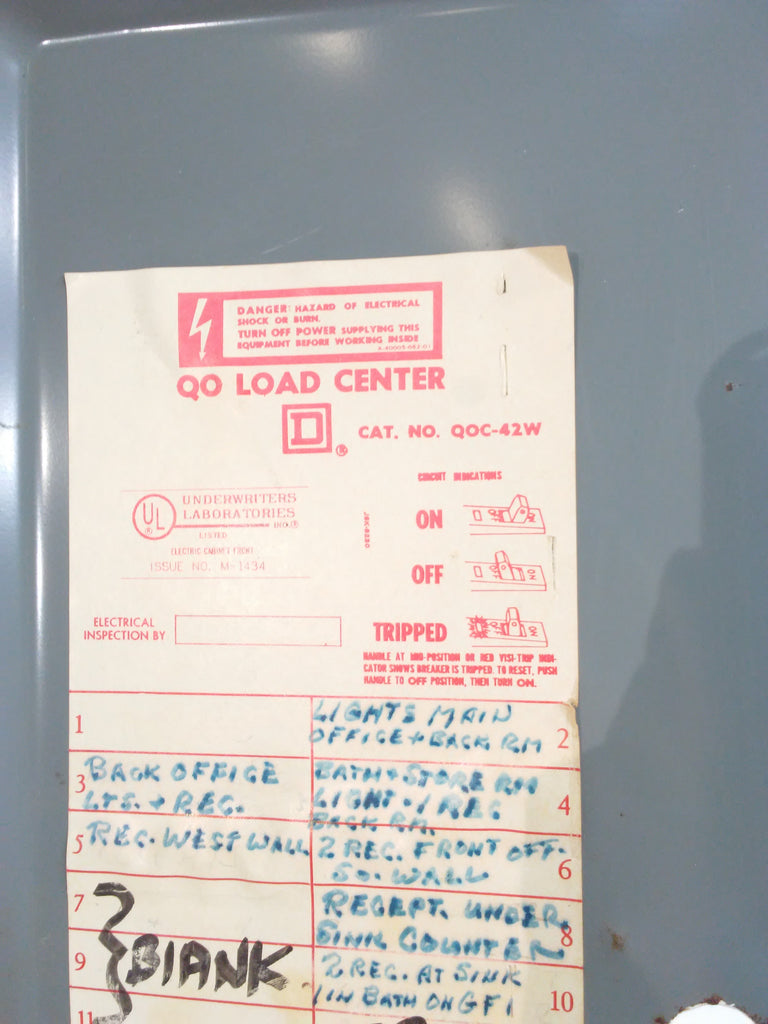 DANGER: HAZARD OF ELECTRICAL
SHOCK OR BURN.
TURN OFF POWER SUPPLYING THIS
EQUIPMENT BEFORE WORKING INSIDE
QO LOAD CENTER
D ® CAT. NO. QOC-42W
CIRCUIT INDICATIONS
UL ® UNDERWRITERS
LABORATORIES
INC.®
LISTED
ELECTRIC CABINET FRONT
ISSUE NO. M-1434
ON
OFF
TRIPPED
ELECTRICAL
INSPECTION BY
HANDLE AT MID-POSITION OR RED VISI-TRIP INDI-
CATOR SHOWS BREAKER IS TRIPPED. TO RESET, PUSH
HANDLE TO OFF POSITION, THEN TURN ON.
1
LIGHTS MAIN
OFFICE + BACK RM 2
3 BACK OFFICE
LTS. + REC.
BATH + STORE RM
LIGHT + 1 REC
BACK RM. 4
5 REC. WEST WALL
2 REC. FRONT OFF.
SO. WALL 6
7
RECEPT. UNDER
SINK COUNTER 8
9 BLANK
2 REC. AT SINK
1 IN BATH ON GFI 10
11